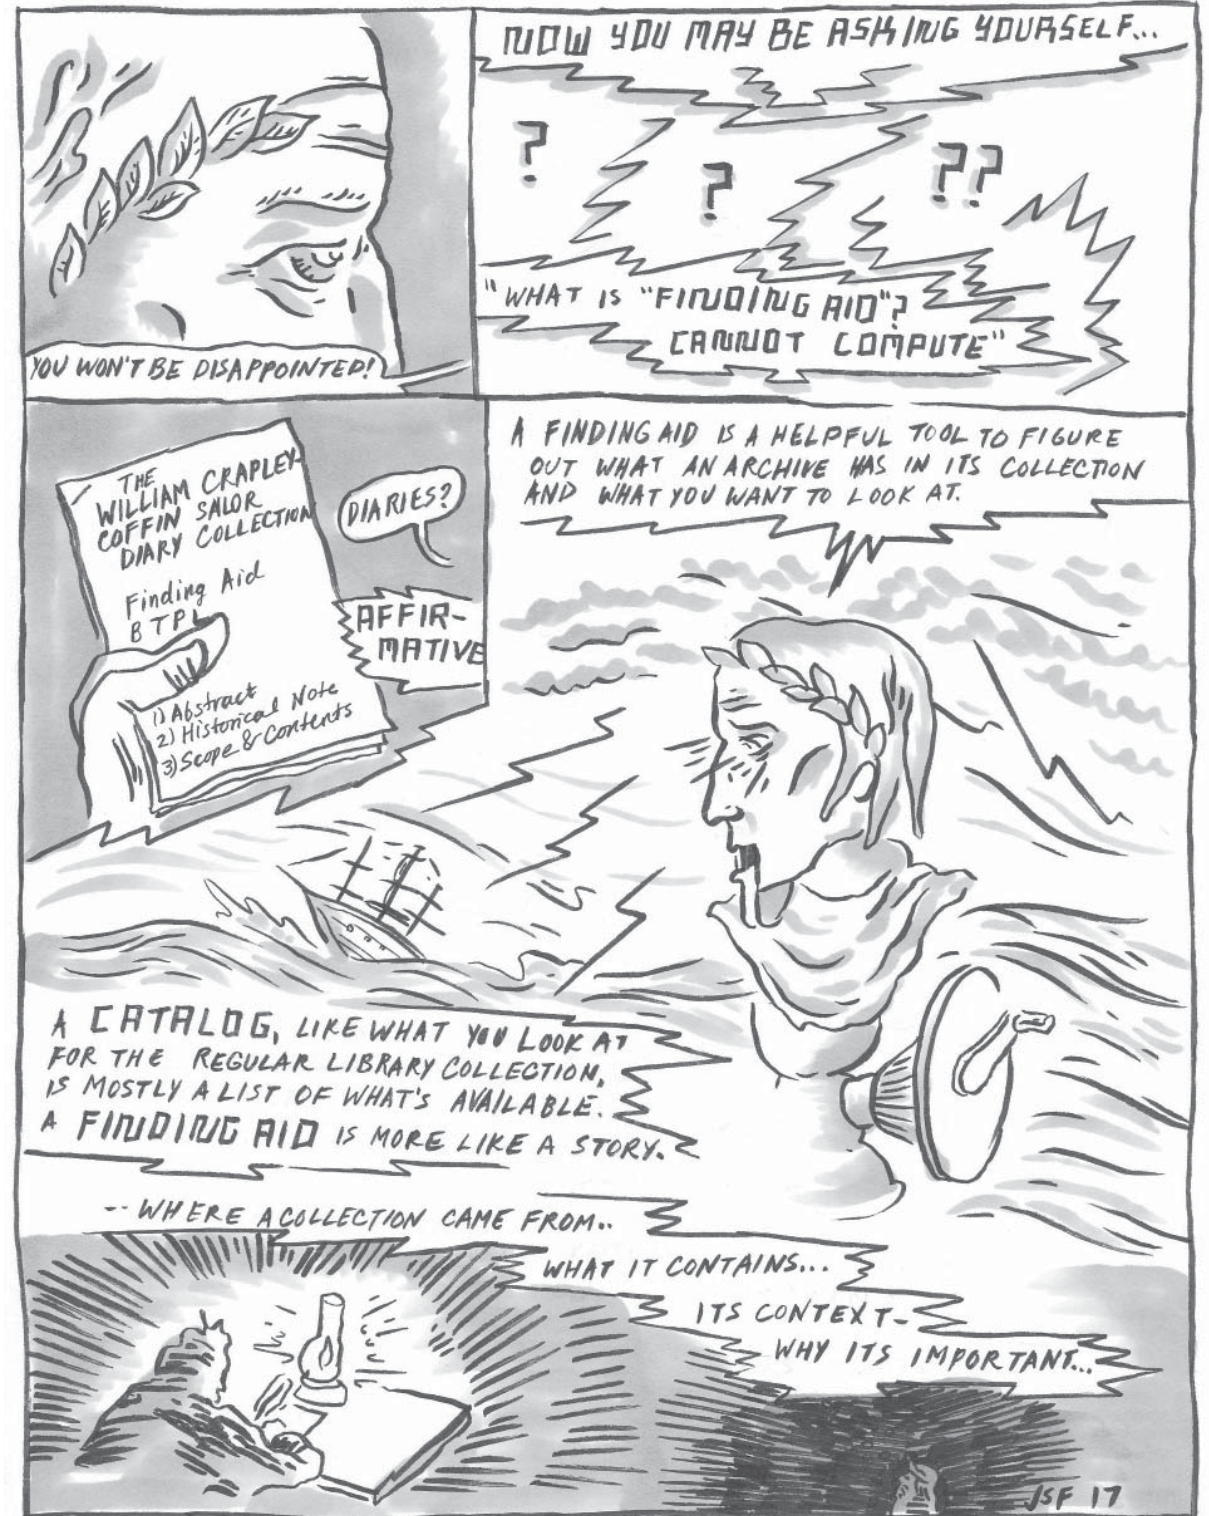 YOU WON'T BE DISAPPOINTED!
NOW YOU MAY BE ASKING YOURSELF...
? ? ??
"WHAT IS "FINDING AID"?
CANNOT COMPUTE"
THE
WILLIAM CRAPLEY-
COFFIN SAILOR
DIARY COLLECTION
Finding Aid
BTPL
1) Abstract
2) Historical Note
3) Scope & Contents
DIARIES?
AFFIR-
MATIVE
A FINDING AID IS A HELPFUL TOOL TO FIGURE
OUT WHAT AN ARCHIVE HAS IN ITS COLLECTION
AND WHAT YOU WANT TO LOOK AT.
A CATALOG, LIKE WHAT YOU LOOK AT
FOR THE REGULAR LIBRARY COLLECTION,
IS MOSTLY A LIST OF WHAT'S AVAILABLE.
A FINDING AID IS MORE LIKE A STORY.
-- WHERE A COLLECTION CAME FROM..
WHAT IT CONTAINS...
ITS CONTEXT-
WHY ITS IMPORTANT...
JSF 17